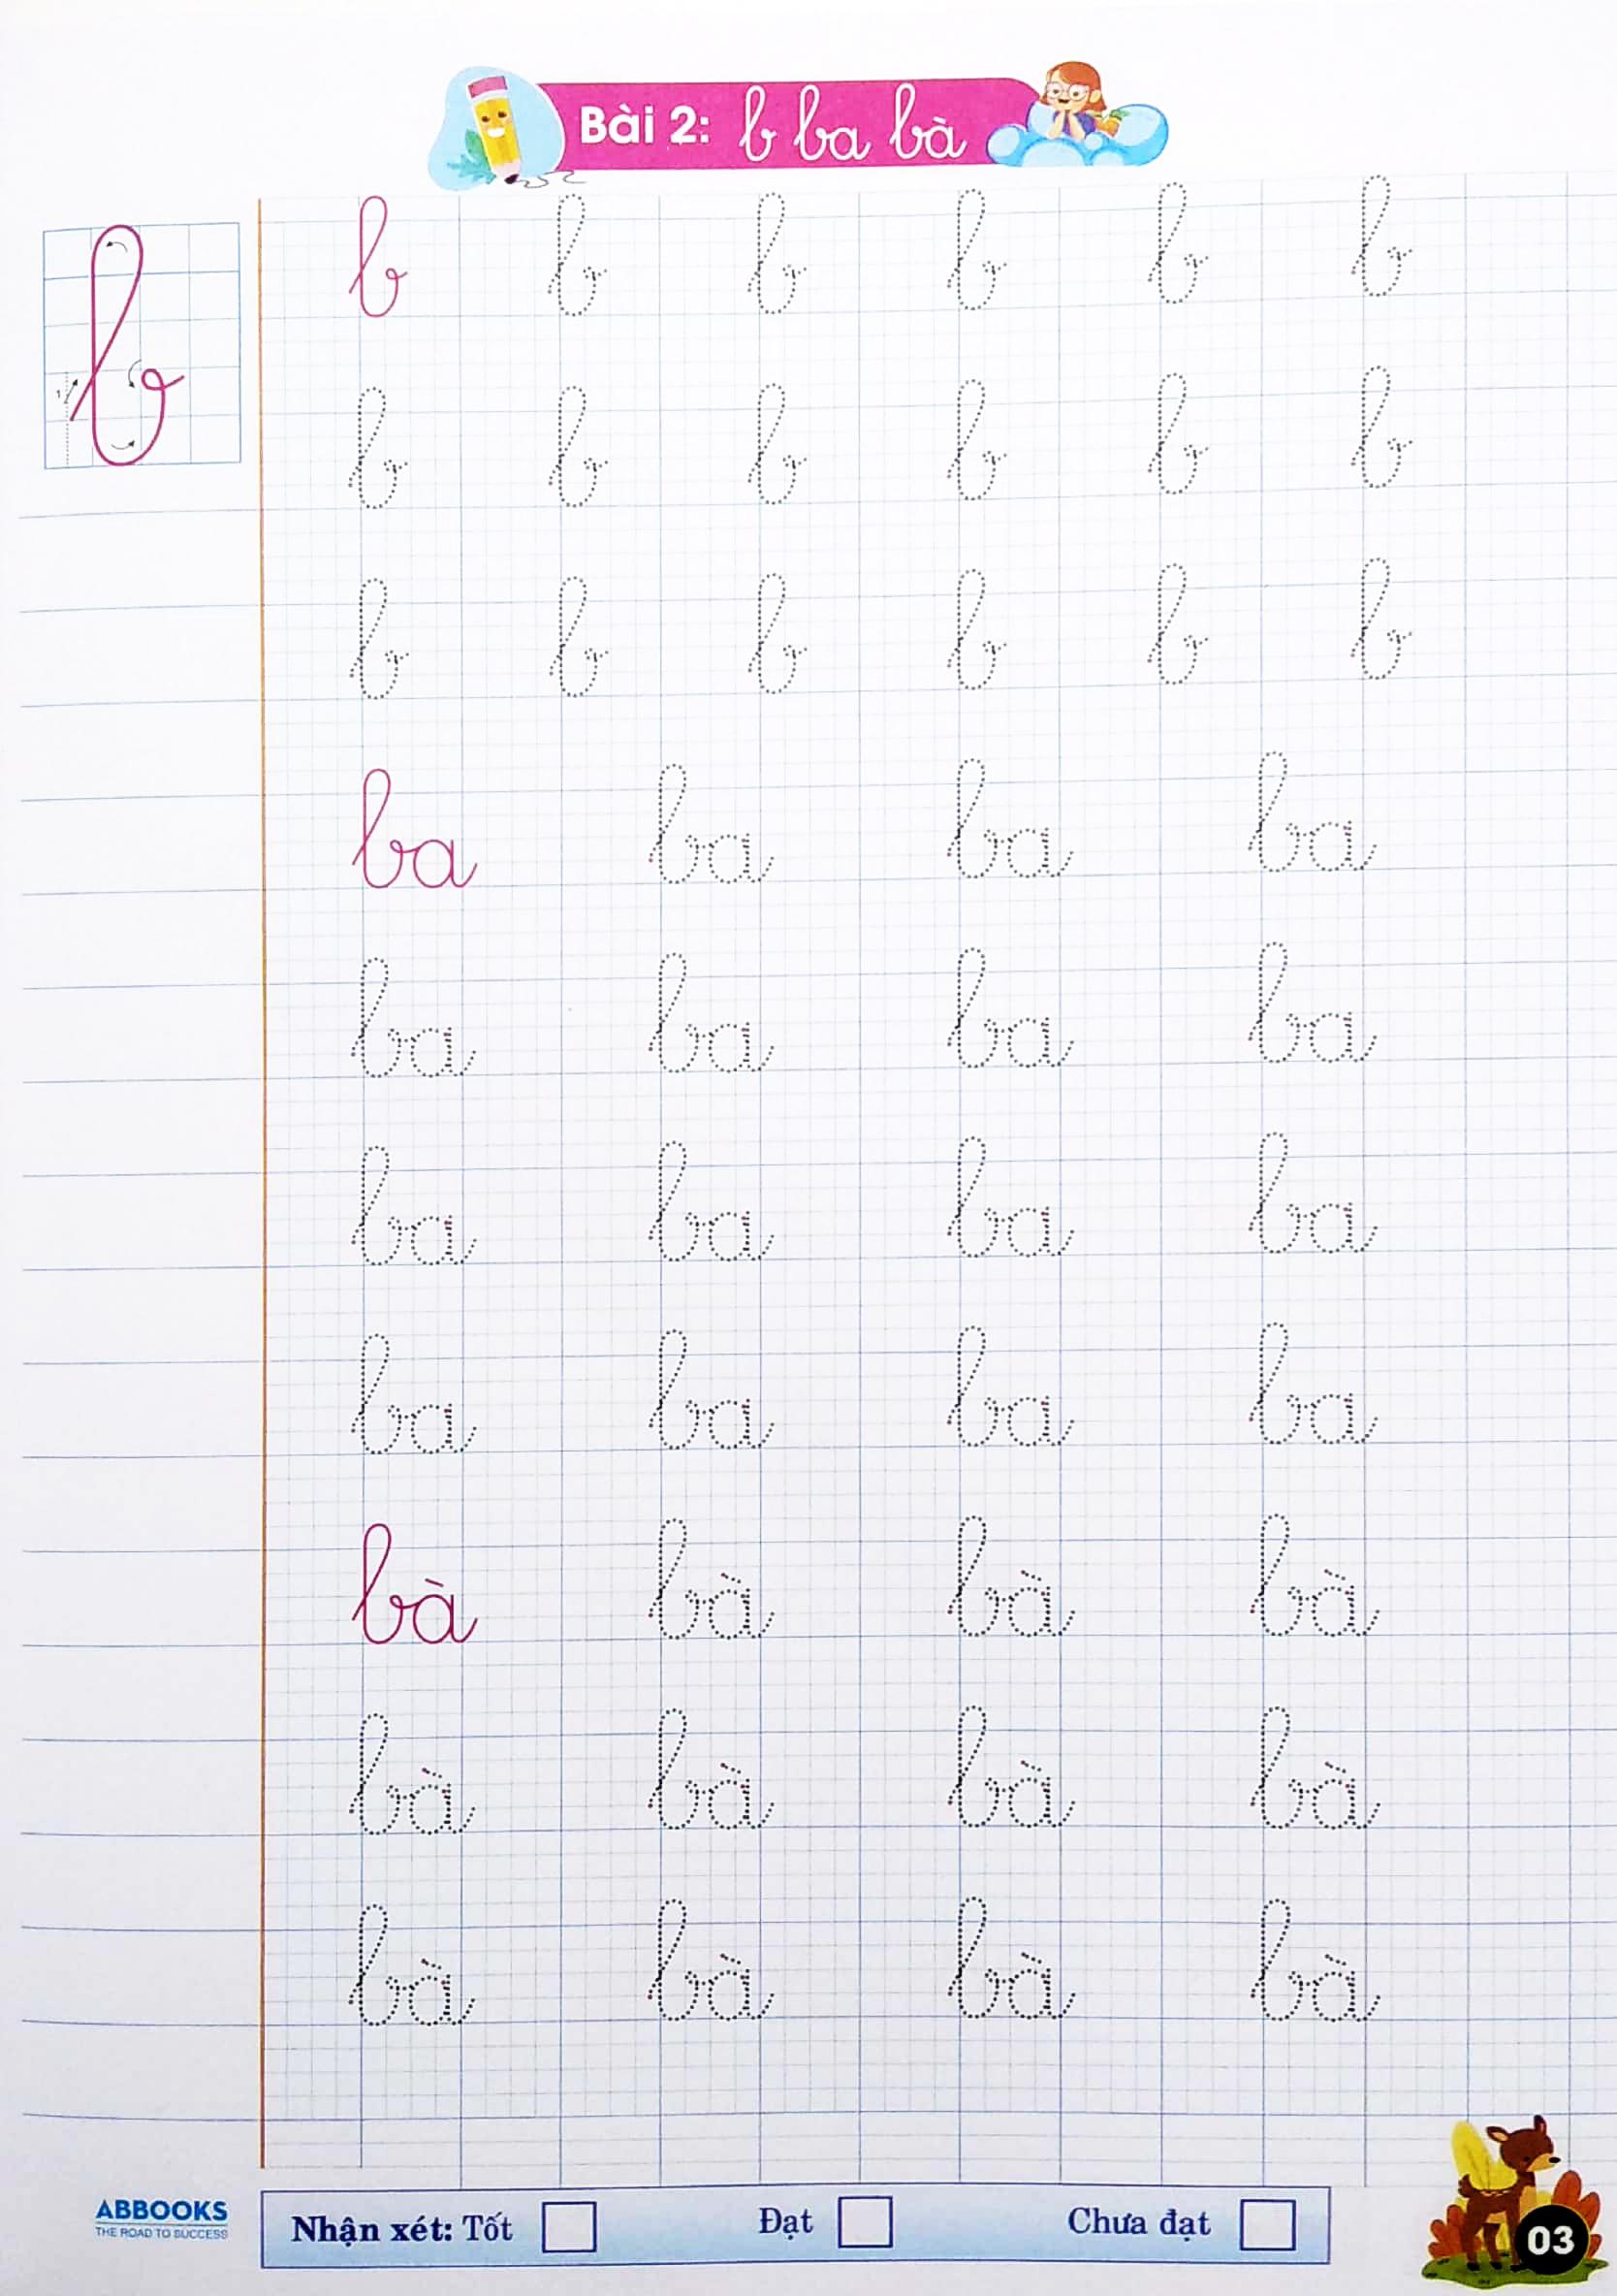 Bài 2: b ba bà
b b b b b b
b b b b b b
b b b b b b
ba ba ba ba
ba ba ba ba
ba ba ba ba
ba ba ba ba
bà bà bà bà
bà bà bà bà
bà bà bà bà
b
1
ABBOOKS
THE ROAD TO SUCCESS
Nhận xét: Tốt Đạt Chưa đạt
03